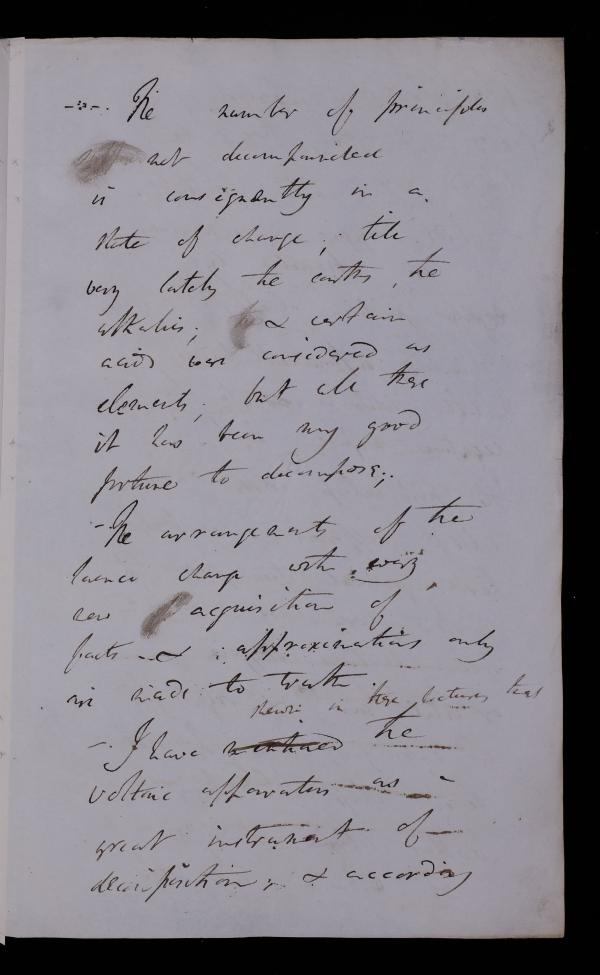 -:-. The number of principles
not decompounded
is consequently in a.
state of change; till
very lately the earths, the
alkalies; & certain
acids were considered as
elements; but all these
it has been my good
fortune to decompose;.
- The arrangements of the
science change with every
new acquisition of
facts - & approximations only
are made to truth
shewn in these lectures that
- I have mentioned the
voltaic apparatus as -
great instrument of
decomposition; & according